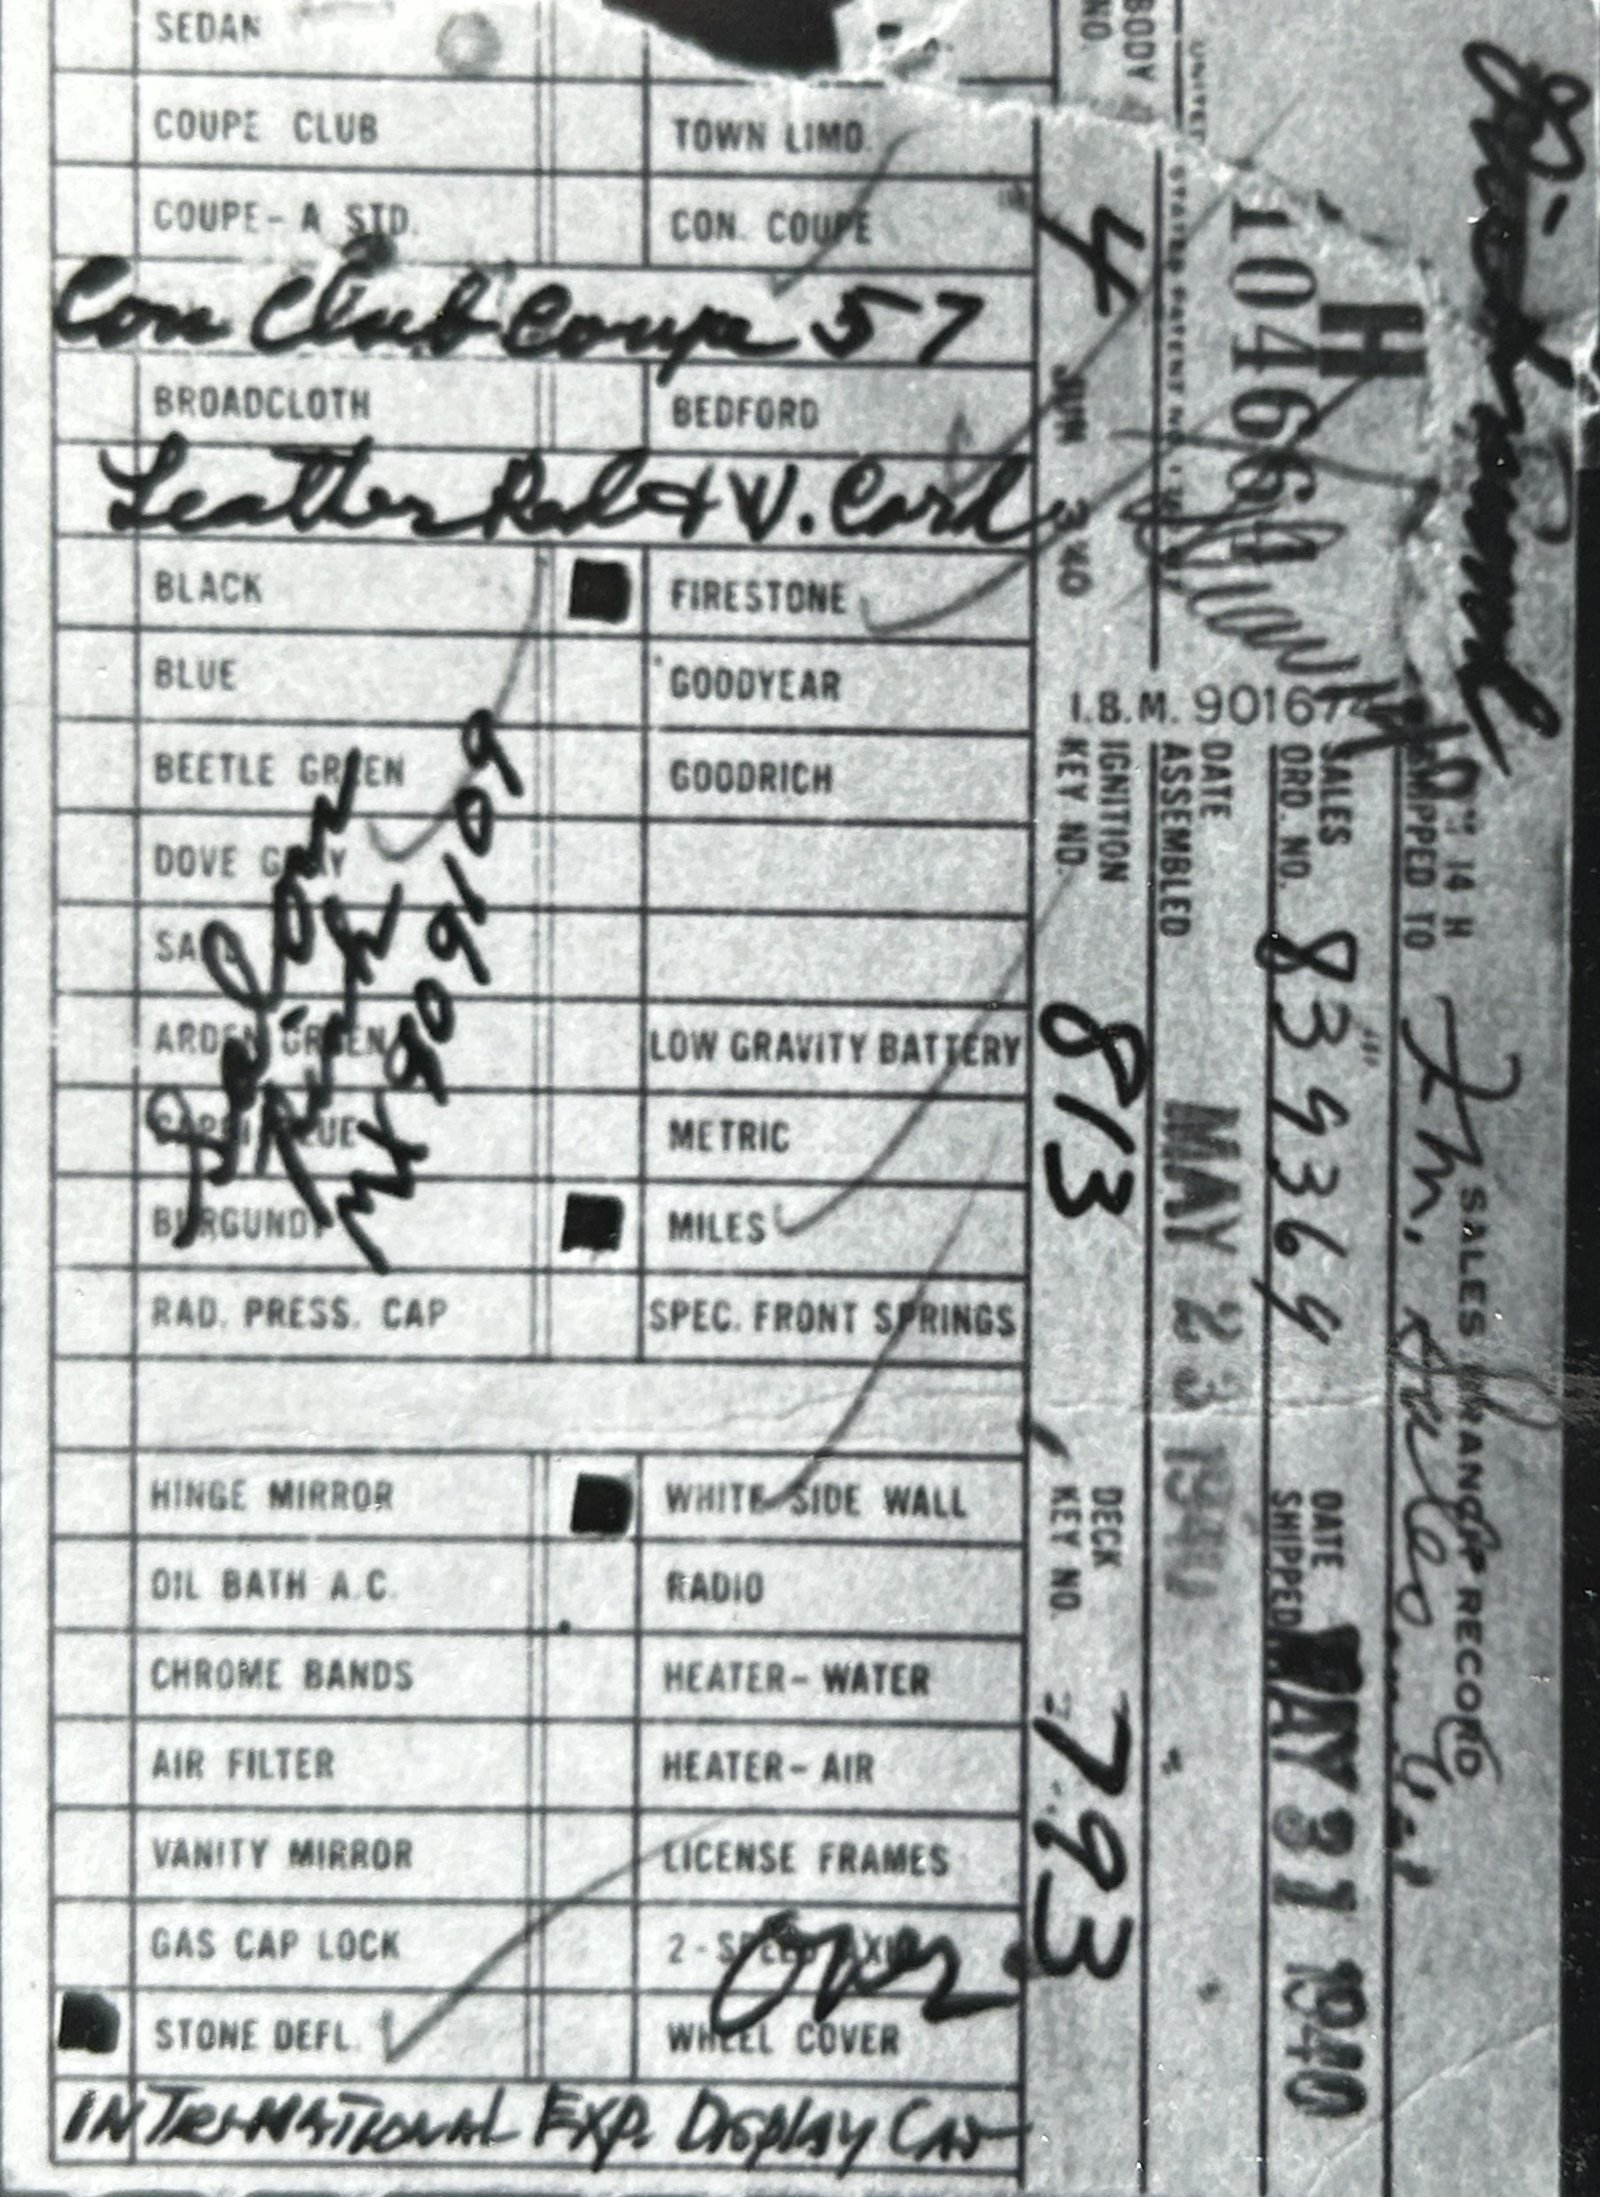 SEDAN
COUPE CLUB TOWN LIMO.
COUPE - A STD. CON. COUPE
Con Club Coupe 57
BROADCLOTH BEDFORD
Leather Red & W. Cord
BLACK FIRESTONE
BLUE GOODYEAR
BEETLE GREEN GOODRICH
DOVE GRAY
ARDEN GREEN LOW GRAVITY BATTERY
METRIC
BURGUNDY MILES
Salon
Pink
MX 809109
RAD. PRESS. CAP SPEC. FRONT SPRINGS
HINGE MIRROR WHITE SIDE WALL
OIL BATH A.C. RADIO
CHROME BANDS HEATER - WATER
AIR FILTER HEATER - AIR
VANITY MIRROR LICENSE FRAMES
GAS CAP LOCK 2 - SPEED AXLE
Over
STONE DEFL. WHEEL COVER
INTERNATIONAL EXP. DISPLAY CAR
BODY NO. 4 JUN 3 '40
UNITED STATES PATENT NO.
H 104661
I.B.M. 901674
IGNITION KEY NO. 813 DECK KEY NO. 793
DATE ASSEMBLED MAY 23 1940
SALES ORD. NO. 839364 DATE SHIPPED MAY 31 1940
SHIPPED TO
14 H SALES ORANGE RECORD